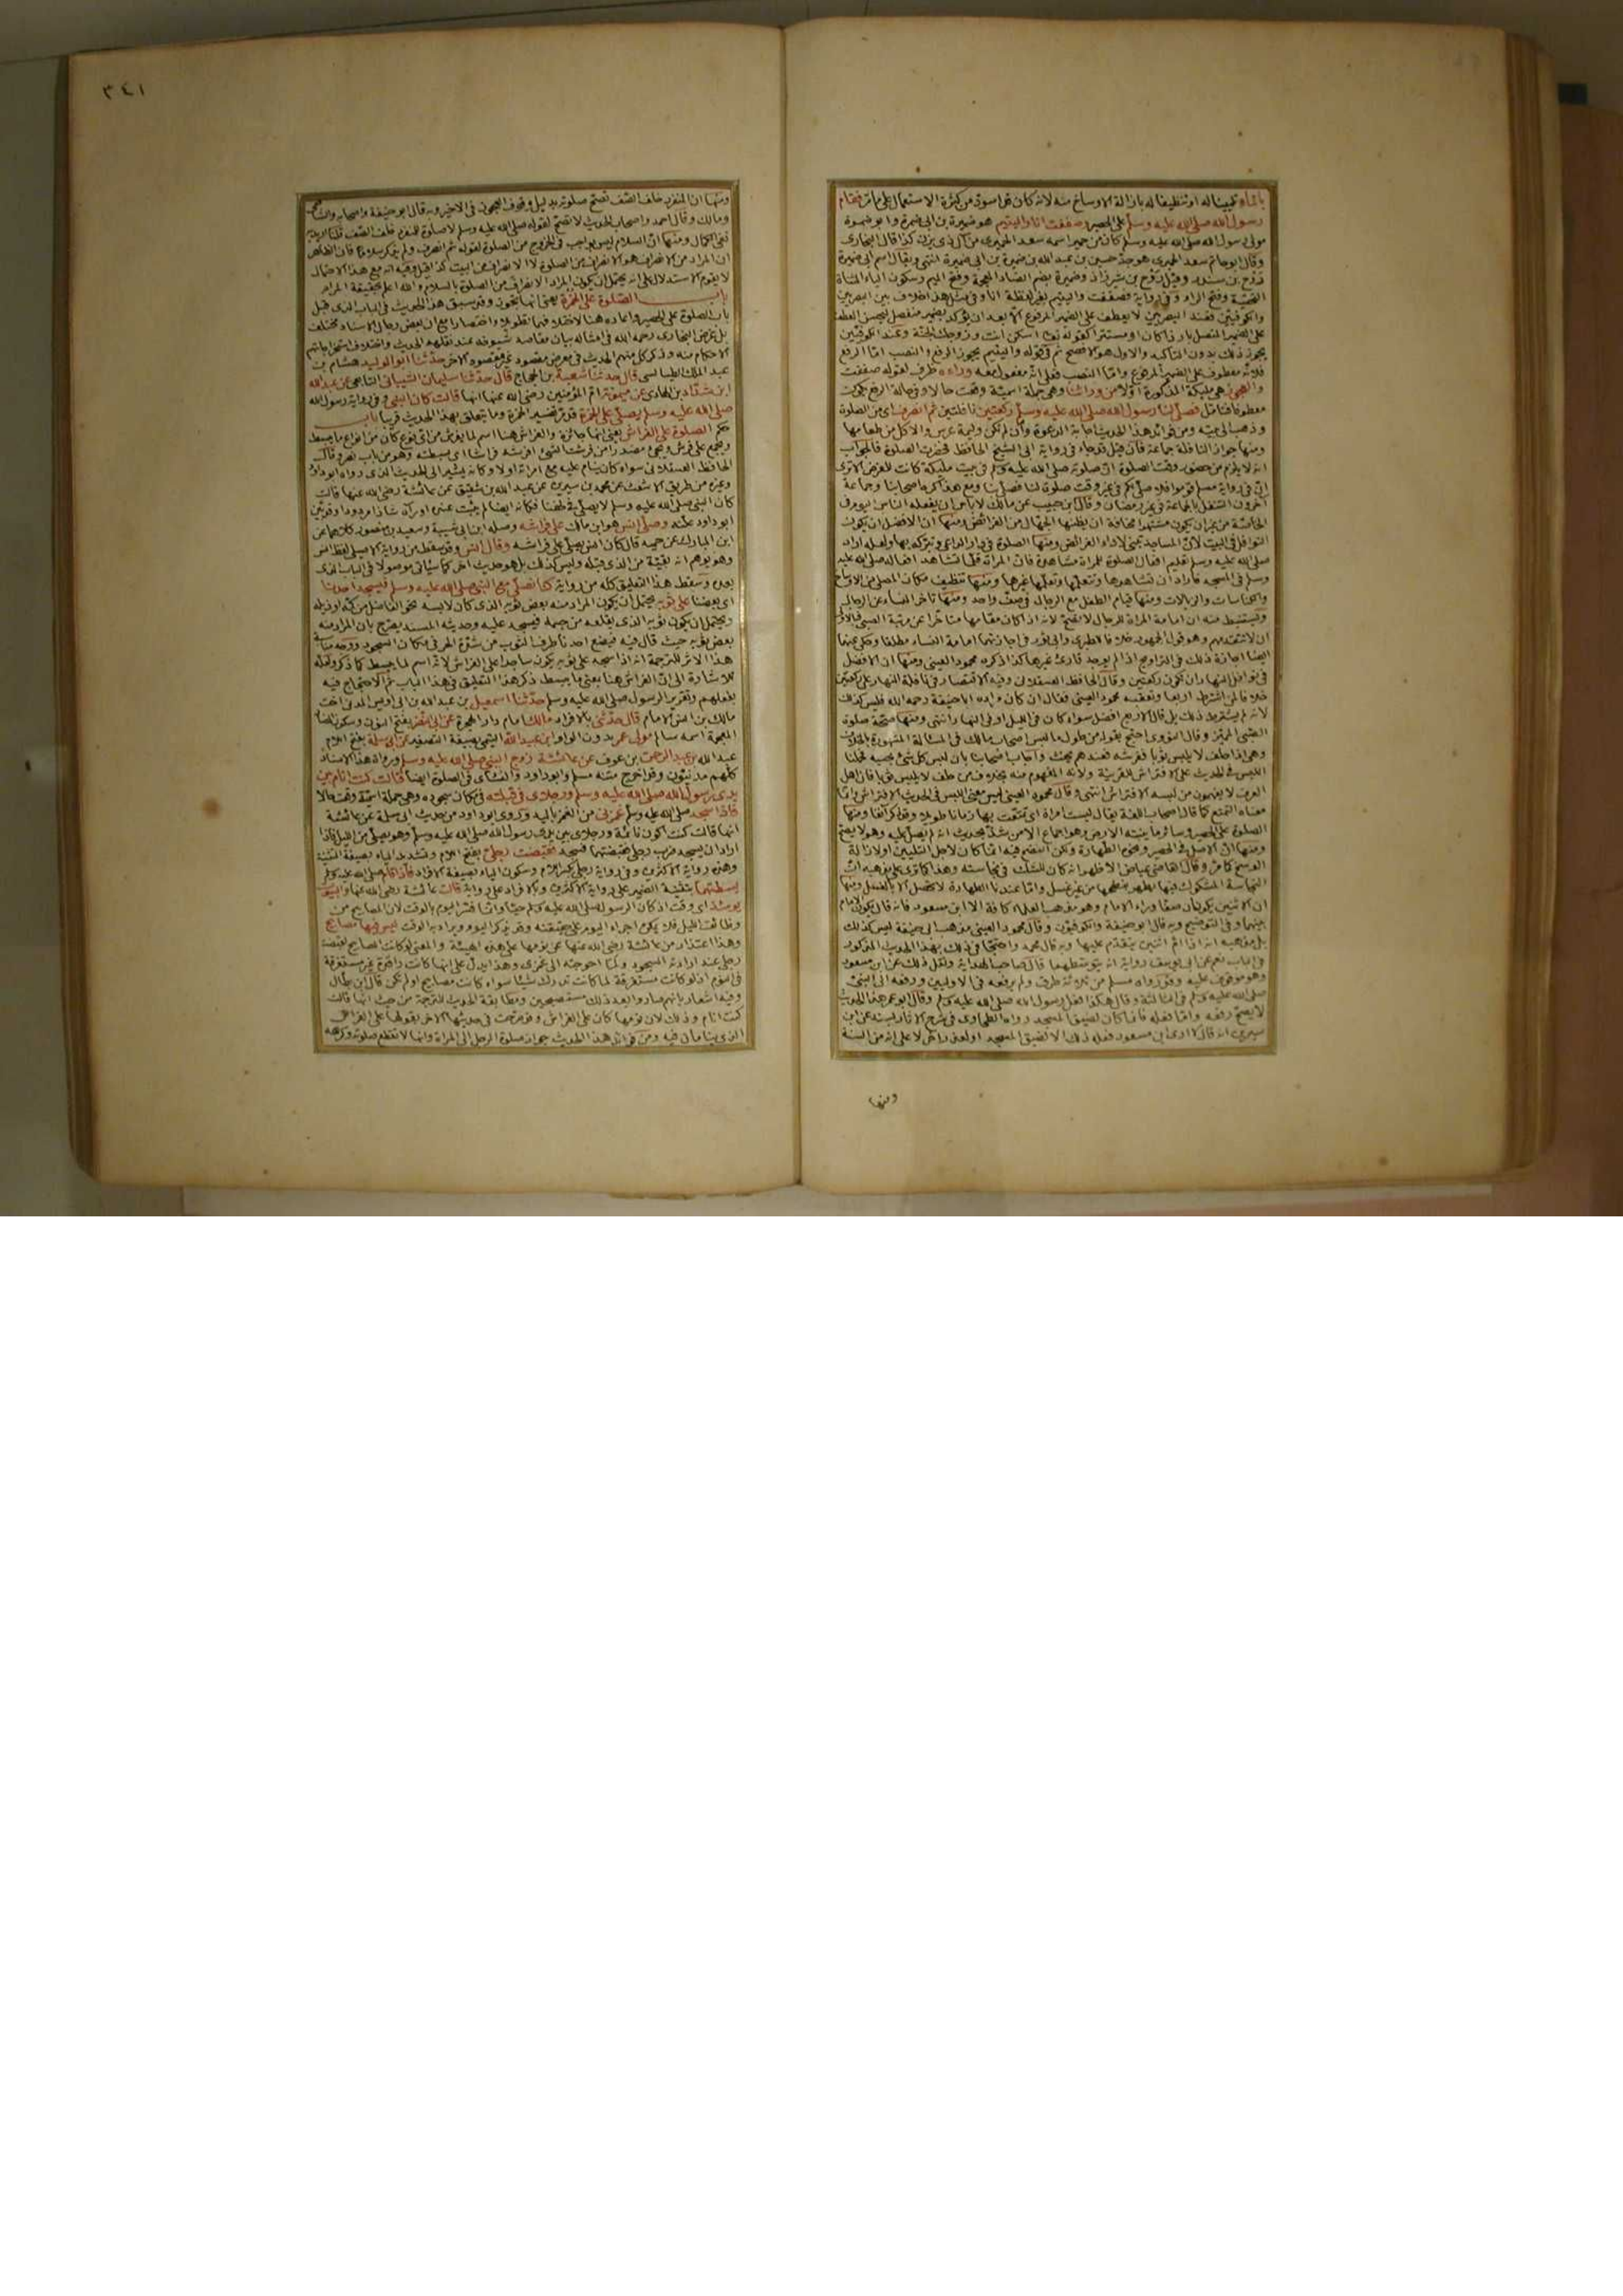 بالماء تليينا له او تنظيفا له بازالة الاوساخ منه لانه كان قد اسود من كثرة الاستعمال على ما مر فقام
رسول الله صلى الله عليه وسلم على الحصير وصففت انا واليتيم هو ضميرة بن ابى ضميرة وابو ضميرة
مولى رسول الله صلى الله عليه وسلم كان من حمير اسمه سعد الحميرى من آل ذى يزن كذا قال البخارى
وقال ابو حاتم سعد الحميرى هو جد حسين بن عبد الله بن ضميرة بن ابى ضميرة انتهى ويقال اسم ابى ضميرة
روح بن سندر وقيل روح بن شيرزاذ وضميرة بضم الضاد المعجمة وفتح الميم وسكون الياء المثناة
التحتية وفتح الراء وفى رواية فصففت واليتيم بغير لفظة انا وفى مثل هذا خلاف بين البصريين
والكوفيين فعند البصريين لا يعطف على الضمير المرفوع الا بعد ان يؤكد بضمير منفصل ليحسن العطف
على الضمير المتصل بارزا كان او مستترا كقوله تعالى اسكن انت وزوجك الجنة وعند الكوفيين
يجوز ذلك بدون التأكيد والاول هو الافصح ثم فى قوله واليتيم يجوز الرفع والنصب اما الرفع
فلانه معطوف على الضمير المرفوع واما النصب فعلى انه مفعول معه وراءه ظرف لقوله صففت
والعجوز هى مليكة المذكورة اولا من ورائنا وهى جملة اسمية وقعت حالا
فصلى لنا رسول الله صلى الله عليه وسلم ركعتين نافلتين ثم انصرف اى من الصلوة
وذهب الى بيته ومن فوائد هذا الحديث اجابة الدعوة وان لم تكن وليمة عرس والاكل من طعامها
ومنها جواز النافلة جماعة فان قيل قد جاء فى رواية ابى الشيخ الحافظ فحضرت الصلوة فالجواب
انه لا يلزم من حضور وقت الصلوة ان صلوته صلى الله عليه وسلم فى بيت مليكة كانت للفرض الا ترى
ان فى رواية مسلم قوموا فلاصلى بكم فى غير وقت صلوة لنا فصلى بنا ومع هذا كره اصحابنا وجماعة
آخرون التنفل بالجماعة فى غير رمضان وقال ابن حبيب عن مالك لا بأس ان يفعله الناس اليوم فى
الخاصة من غير ان يكون مشتهرا مخافة ان يظنها الجهال من الفرائض ومنها ان الافضل ان يكون
النوافل فى البيت لان المساجد تبنى لاداء الفرائض ومنها الصلوة فى دار الداعى وتبركه بها ولعله اراد
صلى الله عليه وسلم تعليم افعال الصلوة للمرأة مشاهدة فان المرأة قلما تشاهد افعاله صلى الله عليه
وسلم فى المسجد فاراد ان تشاهدها وتتعلمها وتعلمها غيرها ومنها تنظيف مكان المصلى من الاوساخ
والكناسات والزبالات ومنها قيام الطفل مع الرجال فى صف واحد ومنها تأخر النساء عن الرجال
ويستنبط منه ان امامة المرأة للرجال لا تصح لانه اذا كان مقامها متأخرا عن مرتبة الصبى فبالاولى
ان لا تتقدمهم وهو قول الجمهور خلافا للطبرى وابى ثور فى اجازتهما امامة النساء مطلقا وحكى عنهما
ايضا اجازة ذلك فى التراويح اذا لم يوجد قارئ غيرها كذا ذكره محمود العينى ومنها ان الافضل
فى نوافل النهار ان تكون ركعتين وقال الحافظ العسقلانى وفيه الاقتصار فى نافلة النهار على ركعتين
خلافا لمن اشترط اربعا وتعقبه محمود العينى فقال ان كان مراده ابا حنيفة رحمه الله فليس كذلك
لانه لم يشترط ذلك بل قال الاربع افضل سواء كان فى الليل او فى النهار انتهى ومنها صحة صلوة
الصبى المميز وقال النووى احتج بقوله من طول ما لبس اصحاب مالك فى المسألة المشهورة بالخلاف
وهى اذا حلف لا يلبس ثوبا ففرشه فعندهم يحنث واجاب اصحابنا بان لبس كل شئ بحسبه فحملنا
اللبس فى الحديث على الافتراش للقرينة ولانه المفهوم منه بخلاف من حلف لا يلبس ثوبا فان اهل
العرف لا يفهمون من لبسه الافتراش انتهى وقال محمود العينى ليس معنى اللبس فى الحديث الافتراش وانما
معناه التمتع كما قال اصحاب اللغة يقال لبست امرأة اى تمتعت بها زمانا طويلا وقد ذكر آنفا ومنها
الصلوة على الحصير وسائر ما ينبته الارض وهو اجماع الا من شذ بحديث انه لم يصل عليه وهو لا يصح
ومنها ان الاصل فى الحصير ونحوه الطهارة ولكن النضح فيه انما كان لاجل التليين او لازالة
الوسخ كما مر وقال القاضى عياض الاظهر انه كان للشك فى نجاسته وهذا كما ترى على مذهبه ان
النجاسة المشكوك فيها تطهر بنضحها من غير غسل واما عندنا الطهارة لا تحصل الا بالغسل ومنها
ان الاثنين يكونان صفا وراء الامام وهو مذهب العلماء كافة الا ابن مسعود فانه قال يكون الامام
بينهما وفى التوضيح وبه قال ابو حنيفة والكوفيون وقال محمود العينى مذهب ابى حنيفة ليس كذلك
بل مذهبه انه اذا ام اثنين يتقدم عليهما وبه قال محمد واحتجا فى ذلك بهذا الحديث المذكور
فى الباب نعم عن ابى يوسف رواية انه يتوسطهما قال صاحب الهداية ونقل ذلك عن ابن مسعود
وهو موقوف عليه وقد رواه مسلم من ثلاثة طرق ولم يرفعه فى الاوليين ورفعه الى النبى
صلى الله عليه وسلم فى الثالثة وقال هكذا فعل رسول الله صلى الله عليه وسلم وقال ابو عمر هذا الحديث
لا يصح رفعه واما فعله فانما كان لضيق المسجد رواه الطحاوى فى شرح الآثار بسنده عن ابن
سيرين انه قال لا ارى ابن مسعود فعل ذلك الا لضيق المسجد او لعذر آخر لا على انه من السنة
ومنها
٣٤١
ومنها ان المنفرد خلف الصف تصح صلوته بدليل وقوف العجوز فى الاخير وبه قال ابو حنيفة واصحابه والشافعى
ومالك وقال احمد واصحاب الحديث لا تصح لقوله صلى الله عليه وسلم لا صلوة للمنفرد خلف الصف قلنا اريد به
نفى الكمال ومنها ان السلام ليس بواجب فى الخروج من الصلوة لقوله ثم انصرف ولم يذكر سلاما فان الظاهر
ان المراد من الانصراف هو الانصراف من الصلوة لا الانصراف من البيت كذا قيل وفيه انه مع هذا الاحتمال
لا يقوم الاستدلال على انه يحتمل ان يكون المراد الانصراف من الصلوة بالسلام والله اعلم بحقيقة المرام
باب الصلوة على الخمرة يعنى انها تجوز وقد سبق هذا الحديث فى الباب الذى قبل
باب الصلوة على الحصير واعاده هنا لاختلافهما تطويلا واختصارا مع ان بعض رجال الاسناد مختلف
بل غرض البخارى رحمه الله فى امثاله بيان مقاصد شيوخه عند نقلهم الحديث واختلاف استخراجاتهم
الاحكام منه وذكر كل منهم الحديث فى معرض مقصود غير مقصود الاخر حدثنا ابو الوليد هشام بن
عبد الملك الطيالسى قال حدثنا شعبة بن الحجاج قال حدثنا سليمان الشيبانى التابعى عن عبد الله
ابن شداد بن الهادى عن ميمونة ام المؤمنين رضى الله عنها انها قالت كان النبى وفى رواية رسول الله
صلى الله عليه وسلم يصلى على الخمرة قد مر تفسير الخمرة وما يتعلق بهذا الحديث قريبا باب
حكم الصلوة على الفراش يعنى انها جائزة والفراش هنا اسم لما يفرش من اى نوع كان من انواع ما يبسط
ويجمع على فرش ويجئ مصدرا من فرشت الشئ افرشه فراشا اى بسطته وهو من باب نصر وقال
الحافظ العسقلانى سواء كان ينام عليه مع امرأته اولا وكانه يشير الى الحديث الذى رواه ابو داود
وغيره من طريق الاشعث عن محمد بن سيرين عن عبد الله بن شقيق عن عائشة رضى الله عنها قالت
كان النبى صلى الله عليه وسلم لا يصلى فى لحفنا فكانه ايضا لم يثبت عنده او رآه شاذا مردودا وقد بين
ابو داود علته وصلى انس هو ابن مالك على فراشه وصله ابن ابى شيبة وسعيد بن منصور كلاهما عن
ابن المبارك عن حميد قال كان انس يصلى على فراشه وقال انس وقد سقط من رواية الاصيلى لفظ انس
وهو يوهم انه بقية من الذى قبله وليس كذلك بل هو حديث آخر كما سيأتى موصولا فى الباب الذى
بعده وسقط هذا التعليق كله من رواية كنا نصلى مع النبى صلى الله عليه وسلم فيسجد احدنا
اى بعضنا على ثوبه يحتمل ان يكون المراد منه بعض ثوبه الذى كان لابسه نحو الفاضل من كمه او ذيله
ويحتمل ان يكون ثوبه الذى يقلعه من جسمه فيسجد عليه وحديثه المسند يصرح بان المراد منه
بعض ثوبه حيث قال فيه فيضع احدنا طرف الثوب من شدة الحر فى مكان السجود ووجه مناسبة
هذا الاثر للترجمة انه اذا سجد على ثوبه يكون ساجدا على الفراش لانه اسم لما يبسط كما ذكر ولعله
للاشارة الى ان الفراش هنا بمعنى ما يبسط ذكر هذا التعليق فى هذا الباب ثم الاحتجاج فيه
بفعلهم وتقرير الرسول صلى الله عليه وسلم حدثنا اسمعيل بن عبد الله بن ابى اويس المدنى ابن اخت
مالك بن انس الامام قال حدثنى بالافراد مالك امام دار الهجرة عن ابى النضر بفتح النون وسكون الضاد
المعجمة اسمه سالم مولى عمر بدون الواو ابن عبيد الله التيمى بصيغة التصغير عن ابى سلمة بفتح اللام
عبد الله بن عبد الرحمن بن عوف عن عائشة زوج النبى صلى الله عليه وسلم ورواة هذا الاسناد
كلهم مدنيون وقد اخرج متنه مسلم وابو داود والنسائى فى الصلوة ايضا قالت كنت انام بين
يدى رسول الله صلى الله عليه وسلم ورجلاى فى قبلته فى مكان سجوده وهى جملة اسمية وقعت حالا
فاذا سجد صلى الله عليه وسلم غمزنى من الغمز باليد وروى ابو داود من حديث ابى سلمة عن عائشة
انها قالت كنت اكون نائمة ورجلاى بين يدى رسول الله صلى الله عليه وسلم وهو يصلى من الليل فاذا
اراد ان يسجد ضرب رجلى فقبضتهما فسجد فقبضت رجلى بفتح اللام وتشديد الياء بصيغة التثنية
وهذه رواية الاكثرين وفى رواية رجلى بكسر اللام وسكون الياء بصيغة الافراد فاذا قام صلى الله عليه وسلم
بسطتهما بتثنية الضمير على رواية الاكثرين وبالافراد على رواية قالت عائشة رضى الله عنها والبيوت
يومئذ اى وقت اذ كان الرسول صلى الله عليه وسلم حيا وانما فسر اليوم بالوقت لان المصابيح من
وظائف الليل فلا يمكن اجراء اليوم على حقيقته وقد يذكر اليوم ويراد به الوقت ليس فيها مصابيح
وهذا اعتذار من عائشة رضى الله عنها عن نومها على هذه الهيئة والمعنى لو كانت المصابيح لقبضت
رجلى عند ارادته السجود ولما احوجته الى غمزى وهذا يدل على انها كانت راقدة غير مستغرقة
فى النوم اذ لو كانت مستغرقة لما كانت تدرك شيئا سواء كانت مصابيح او لم تكن قال ابن بطال
وفيه اشعار بانهم صاروا بعد ذلك مستصبحين ومطابقة الحديث للترجمة من حيث انها قالت
كنت انام وذلك لان نومها كان على الفراش وقد صرحت فى حديثها الاخر بقولها على الفراش
الذى ينامان فيه ومن فوائد هذا الحديث جواز صلوة الرجل الى المرأة وانها لا تقطع صلوته وكرهه